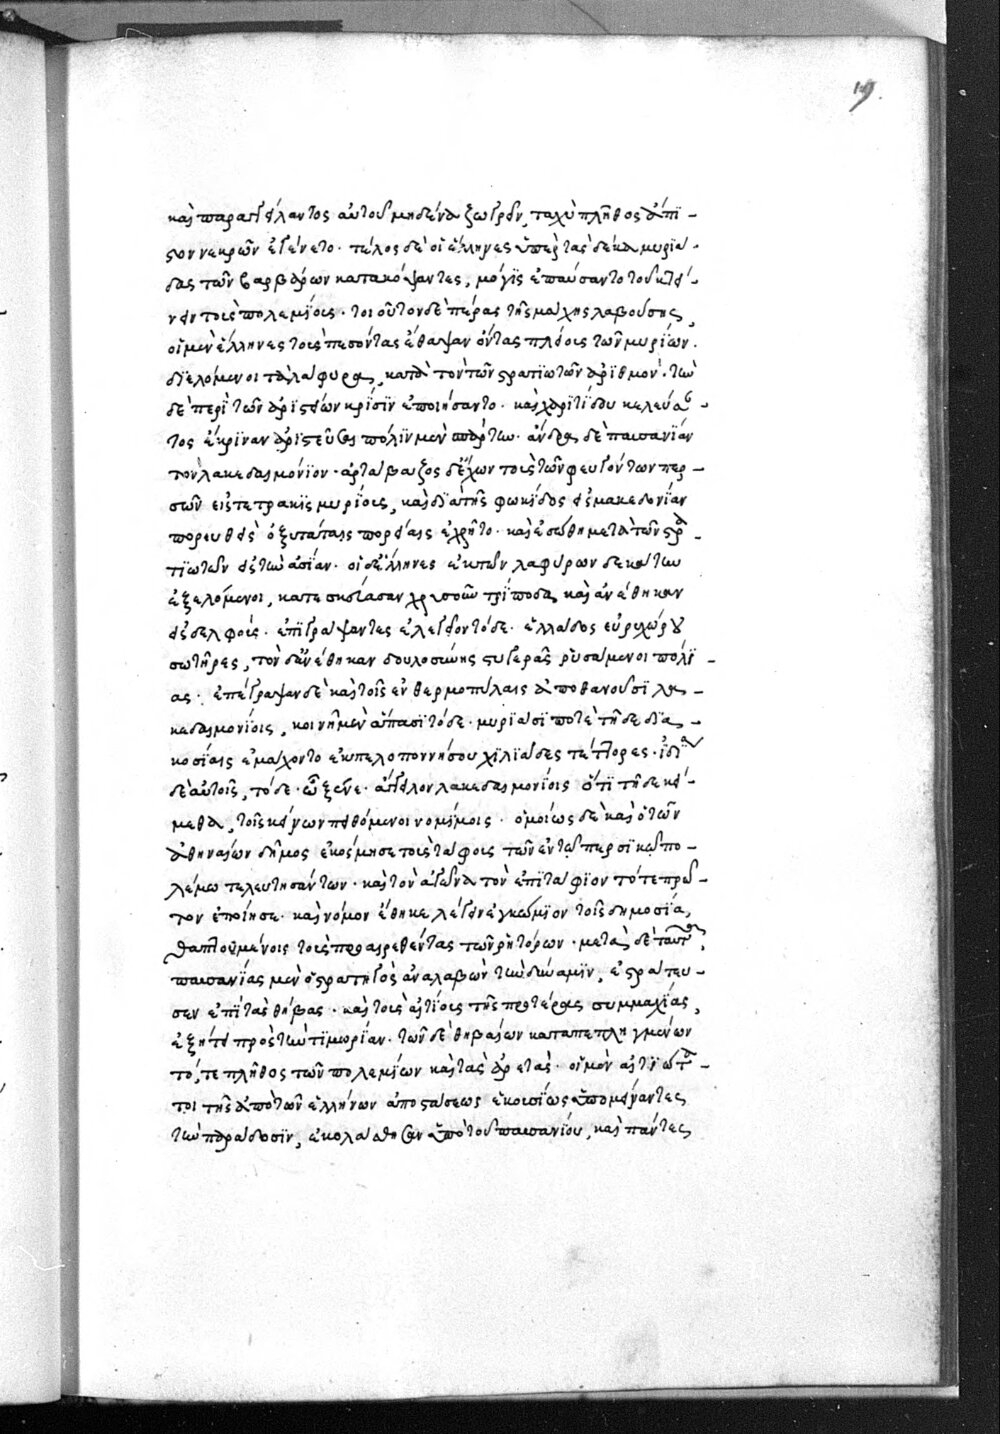 19.
καὶ παραγγείλαντος αὐτοῦ μηδένα ζωγρεῖν, ταχὺ πλῆθος ἄπι-
στον νεκρῶν ἐγένετο· τέλος δὲ οἱ ἕλληνες ὑπὲρ τὰς δέκα μυριά-
δας τῶν βαρβάρων κατακόψαντες, μόγϊς ἐπαύσαντο τοῦ κτεί-
νειν τοὺς πολεμΐους· τοιοῦτον δὲ πέρας τῆς μάχης λαβούσης,
οἱ μὲν ἕλληνες τοὺς πεσόντας ἔθαψαν ὄντας πλείους τῶν μυρΐων·
διελόμενοι τὰ λάφυρα, κατὰ τὸν τῶν στρατϊωτῶν ἀρϊθμὸν· τὴν
δὲ περὶ τῶν ἀριστείων κρΐσϊν ἐποιήσαντο· καὶ χαριτΐδου κελεύσαν-
τος ἔκρϊναν ἀρϊστεῦσαι πόλϊν μὲν σπάρτην· ἄνδρα δὲ παυσανΐαν
τὸν λακεδαιμόνϊον· ἀρτάβαζος δ' ἔχων τοὺς τῶν φευγόντων περ-
σῶν εἰς τετρακϊς μυρΐους, καὶ δϊὰ τῆς φωκΐδος εἰς μακεδονΐαν
πορευθεὶς ὀξυτάταις πορείαις ἐχρῆτο· καὶ ἐσώθη μετὰ τῶν στρα-
τϊωτῶν εἰς τὴν ἀσΐαν· οἱ δ' ἕλληνες ἐκ τῶν λαφύρων δεκάτην
ἐξελόμενοι, κατεσκεύασαν χρυσοῦν τρΐποδα, καὶ ἀνέθηκαν
εἰς δελφούς· ἐπϊγράψαντες ἐλεγεῖον τόδε· ἑλλάδος εὐρυχώρου
σωτῆρες, τόνδ' ἀνέθηκαν δουλοσύνης στυγερᾶς ῥυσάμενοι πόλϊ-
ας· ἐπέγραψαν δὲ καὶ τοῖς ἐν θερμοπύλαις ἀποθανοῦσϊ λα-
κεδαιμονΐοις, κοινῇ μὲν ἅπασϊ τόδε· μυρϊάσϊ ποτὲ τῇδε δϊα-
κοσΐαις ἐμάχοντο ἐκ πελοποννήσου χϊλϊάδες τέττορες· ἰδΐᾳ
δὲ αὐτοῖς, τόδε· ὦ ξεῖνε· ἄγγειλον λακεδαιμονΐοις ὅτϊ τῇδε κεί-
μεθα, τοῖς κείνων πειθόμενοι νομΐμοις· ὁμοίως δὲ καὶ ὁ τῶν
ἀθηναίων δῆμος ἐκόσμησε τοὺς τάφους τῶν ἐν τῷ περσϊκῷ πο-
λέμῳ τελευτησάντων· καὶ τὸν ἀγῶνα τὸν ἐπϊτάφϊον τότε πρῶ-
τον ἐποίησε· καὶ νόμον ἔθηκε λέγειν ἐγκώμϊον τοῖς δημοσΐᾳ
θαπτομένοις τοὺς προαιρεθέντας τῶν ῥητόρων· μετὰ δὲ ταῦτα,
παυσανΐας μὲν ὁ στρατηγὸς ἀναλαβὼν τὴν δύναμϊν, ἐστράτευ-
σεν ἐπὶ τὰς θήβας· καὶ τοὺς αἰτΐους τῆς προτέρας συμμαχΐας,
ἐξῄτει πρὸς τὴν τϊμωρΐαν· τῶν δὲ θηβαίων καταπεπληγμένων
τό, τε πλῆθος τῶν πολεμΐων καὶ τὰς ἀρετὰς· οἱ μὲν αἰτϊώτα-
τοι τῆς ἀπὸ τῶν ἑλλήνων ἀποστάσεως ἑκουσΐως ὑπομείναντες
τὴν παράδοσϊν, ἐκολάσθησαν ὑπὸ τοῦ παυσανίου, καὶ πάντες